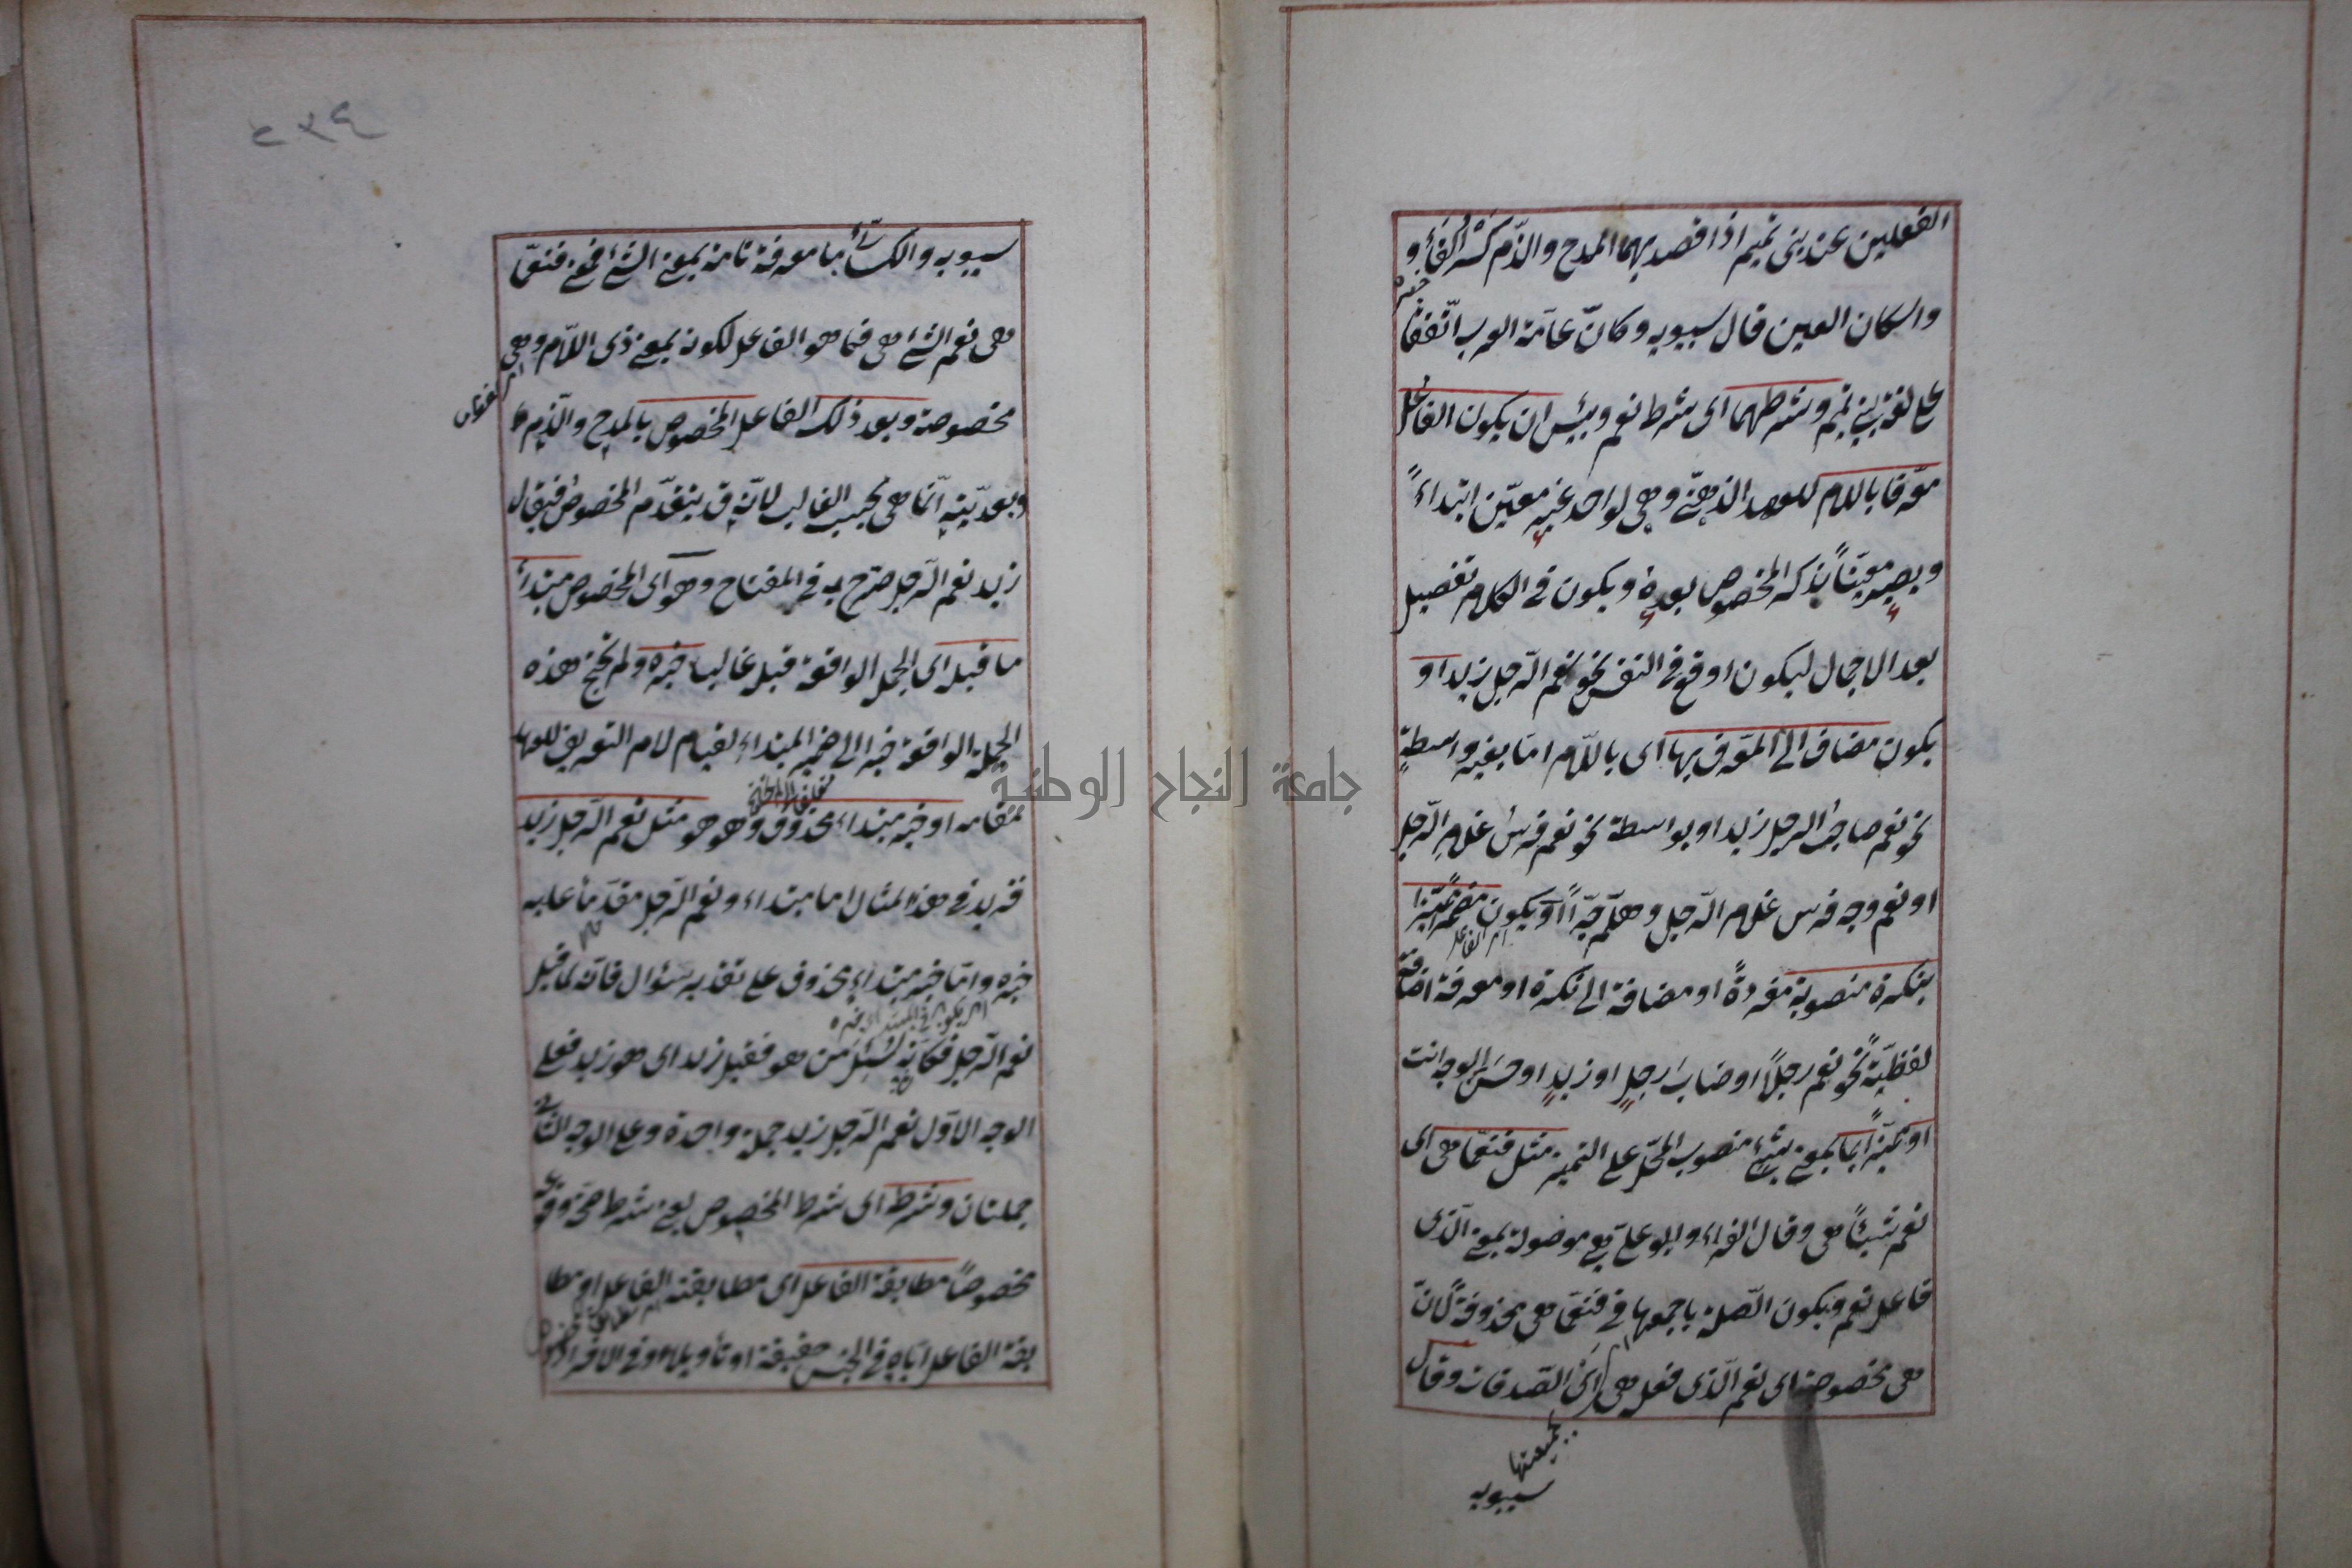 الفعلين عند بنى تميم اذا قصد بهما المدح والذّم كسر الفاء و
واسكان العين قال سيبويه وكانّ عامّة العرب اتّفقا
على لغة بنى تميم وشرطهما اى شرط نعم وبئس ان يكون الفاعل
معرّفا باللام للعهد الذهنّى وهى لواحد غير معيّن ابتداءً
ويصير معيّناً بذكر المخصوص بعده ويكون فى الكلام تفصيل
بعد الاجمال ليكون اوقع فى النفس نحو نعم الرّجل زيد او
يكون مضافا الى المعرّف بها اى باللّام امّا بغير واسطة
نحو نعم صاحب الرجل زيد او بواسطة نحو نعم فرس غلام الرّجل
او نعم وجه فرس غلام الرّجل وهلّم جرّاً او يكون مضمراً مميّزا
اى الفاعل
بنكرة منصوبة مفردةً او مضافة الى نكرة او معرفة اضافة
لفظيّةً نحو نعم رجلاً او ضارب رجلٍ او زيدٍ او حسن الوجه انت
او مميّزاً بما بمعنى شئ منصوب المحلّ على التميز مثل فنعمّا هى اى
نعم شيئاً هى وقال الفراء وابو على هى موصولة بمعنى الّذى
فاعل نعم ويكون الصّلة باجمعها فى فنعمّا هى محذوفة لانّ
هى مخصوصة اى نعم الّذى فعل هى اى الصّدقات وقال
بجميعها
سيبويه
سيبويه والكسائّى ما معرفة تامة بمعنى الشئ فمعنى فنعمّا
هى نعم الشئ هى فما هو الفاعل لكونه بمعنى ذى اللّام وهى
مخصوصة وبعد ذلك الفاعل المخصوص بالمدح والذّم
وبعديّته انّما هى بحسب الغالب لانّه قد يتقدّم المخصوص فيقال
زيد نعم الرّجل صرّح به فى المفتاح وهو اى المخصوص مبتدأ
ما قبله اى الجملة الواقعة قبله غالبا خبره ولم تحتج هذه
الجملة الواقعة خبرا الى ضمير المبتداء لقيام لام التعريف للعهد
مقامه او خبر مبتداء محذوف وهو هو مثل نعم الرّجل زيد
فزيد فى هذا المثال اما مبتداء ونعم الرّجل مقدّماً عليه
خبره وامّا خبر مبتداء محذوف على تقدير سؤال فانّه لما قيل
نعم الرّجل فكانّه سُئل من هو فقيل زيد اى هو زيد فعلى
الوجه الاوّل نعم الرّجل زيد جملة واحدة وعلى الوجه الثانى
جملتان وشرطه اى شرط المخصوص يعنى شرط صحّة وقوعه
مخصوصاً مطابقة الفاعل اى مطابقته الفاعل او مطا
بقة الفاعل ايّاه فى الجنس حقيقة او تأويلا وفى الافراد
جامعة النجاح الوطنية